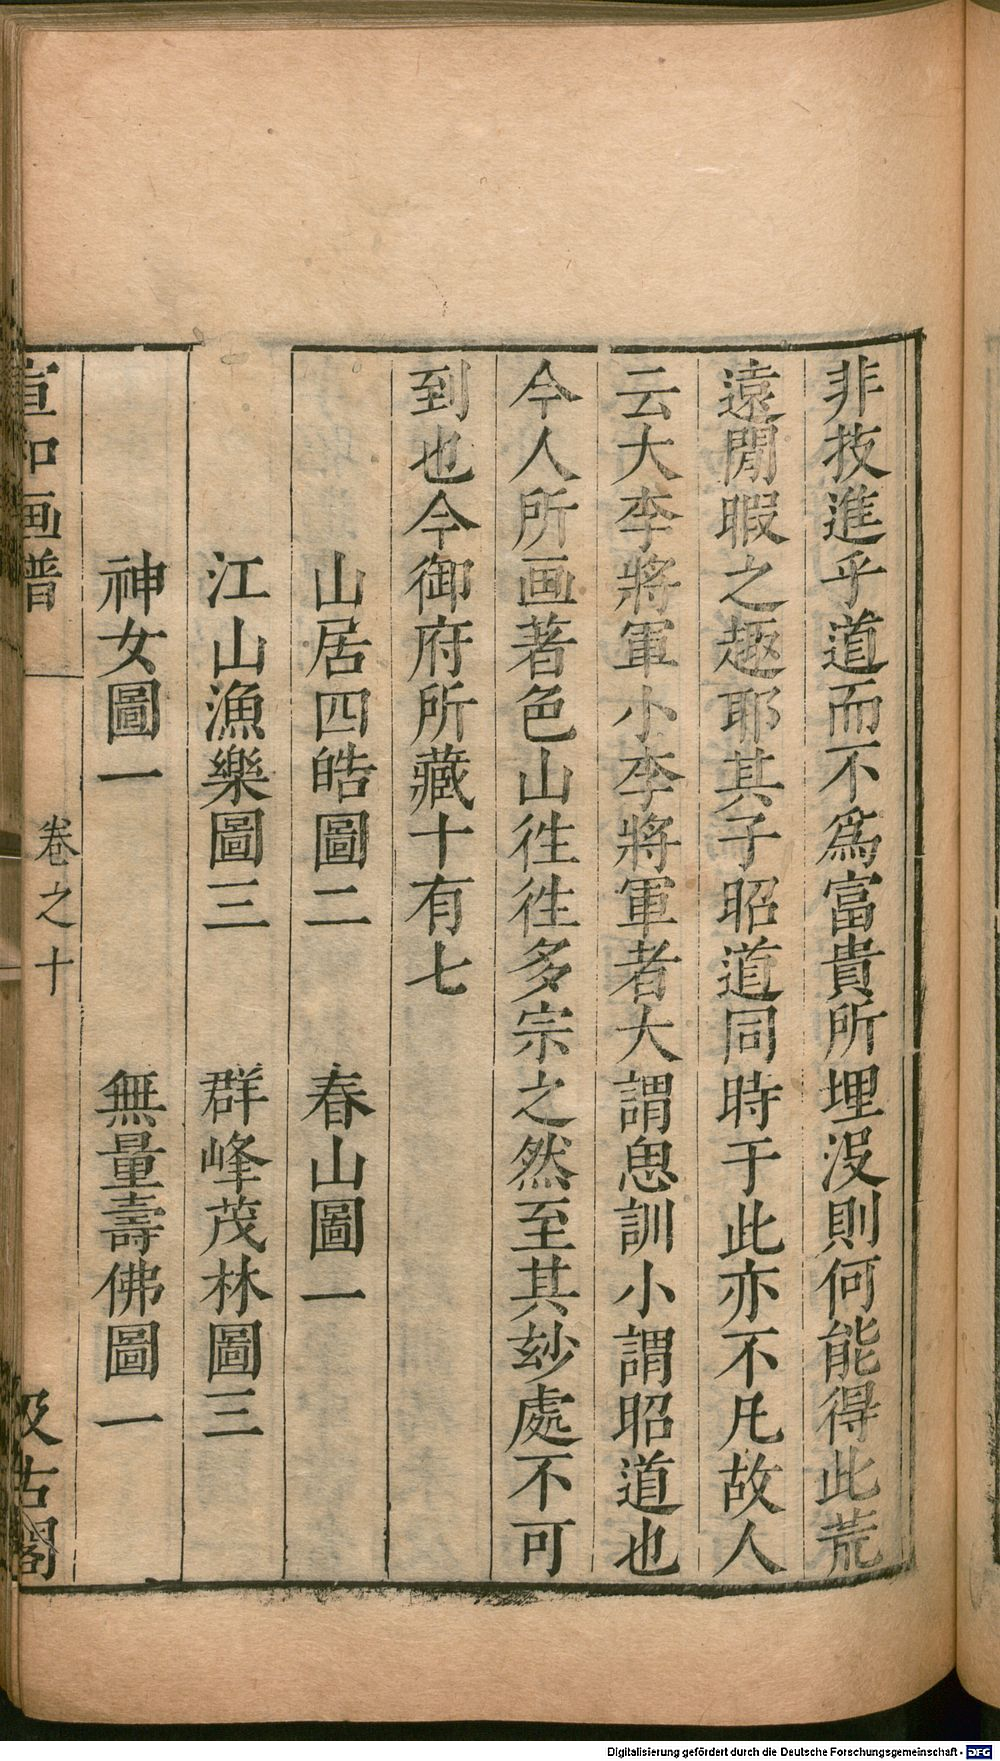 非技進乎道而不爲富貴所埋沒則何能得此荒
遠閒暇之趣耶其子昭道同時于此亦不凡故人
云大李將軍小李將軍者大謂思訓小謂昭道也
今人所画著色山徃徃多宗之然至其玅處不可
到也今御府所藏十有七
山居四皓圖二 春山圖一
江山漁樂圖三 群峰茂林圖三
神女圖一 無量壽佛圖一
宣和画譜 卷之十 汲古閣
Digitalisierung gefördert durch die Deutsche Forschungsgemeinschaft - DFG